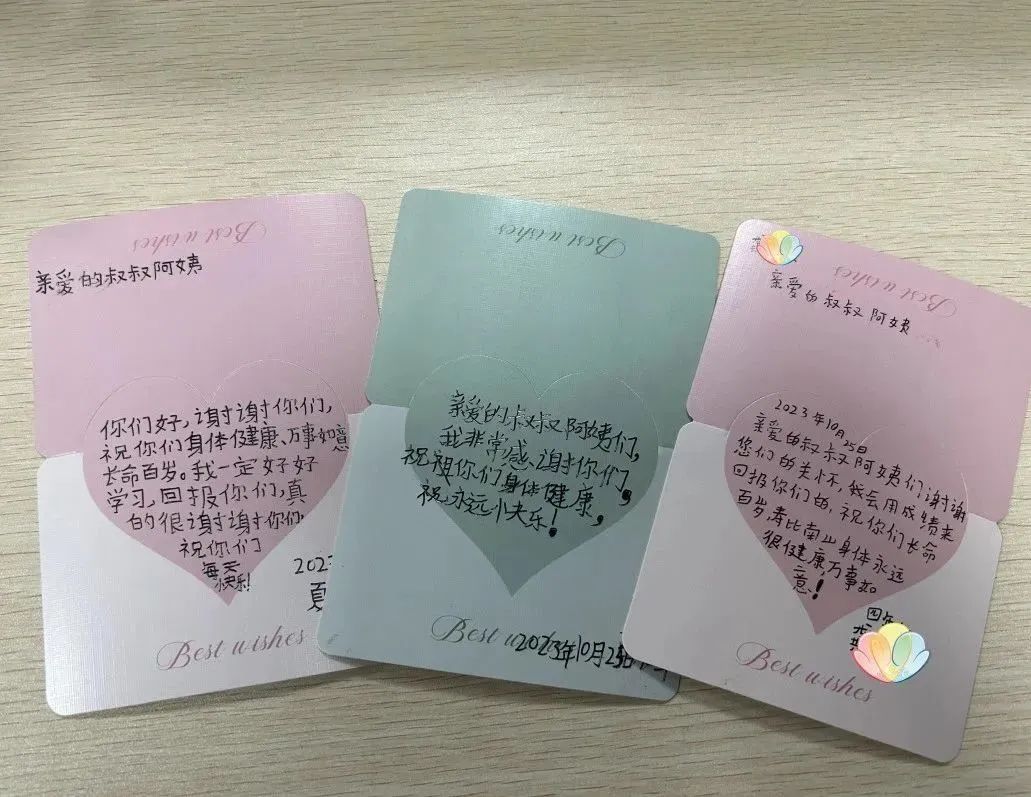 Best wishes
亲爱的叔叔阿姨
你们好,谢谢你们,
祝你们身体健康、万事如意
长命百岁。我一定好好
学习,回报你们,真
的很谢谢你们,
祝你们
每天
快乐!
202
夏
Best wishes
Best wishes
亲爱的叔叔阿姨们,
我非常感谢你们,
祝祖你们身体健康,
祝永远小快乐!
Best w
2023年10月25日
Best wishes
亲爱的叔叔阿姨
2023年10月25日
亲爱的叔叔阿姨们谢谢
您们的关怀,我会用成绩来
回报你们的,祝你们长命
百岁,寿比南山身体永远
很健康,万事如
意!
四年
Best wishes